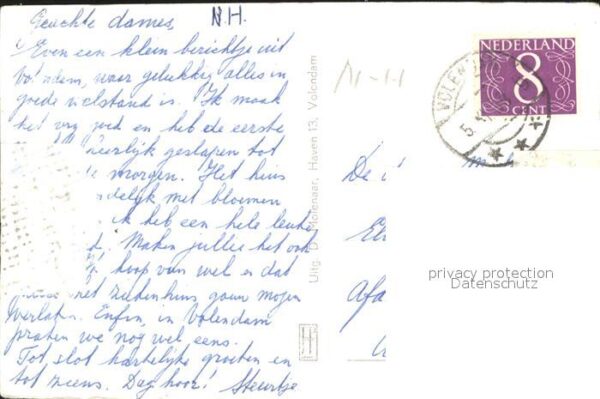 Geachte dames, N.H.
Even een klein berichtje uit
Volendam, waar gelukkig alles in
goede welstand is. Ik maak
het erg goed en heb de eerste
heerlijk geslapen tot
de morgen. Het huis
met bloemen
ik heb een hele leuke
Maken jullie het ook
hoop van wel en dat
het ziekenhuis gauw mogen
verlaten. Enfin, in Volendam
praten we nog wel eens.
Tot slot hartelijke groeten en
tot ziens. Dag hoor!
Uitg. D. Molenaar, Haven 13, Volendam
NEDERLAND
8
CENT
VOLEN
5
De
Afa
privacy protection
Datenschutz